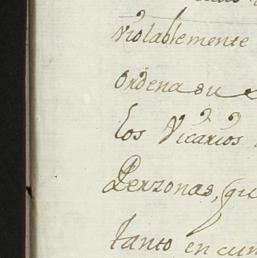 violablemente
ordena su
los Vicarios
Perzonas, qu
tanto en cum